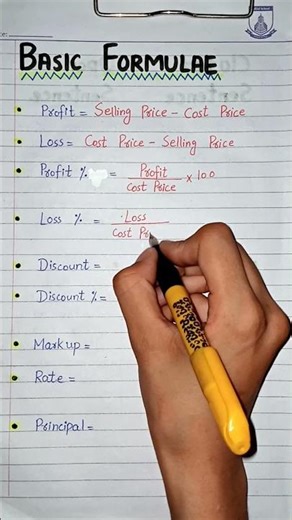 BASIC FORMULAE
• Profit = Selling Price - Cost Price
• Loss = Cost Price - Selling Price
• Profit % = Profit / Cost Price × 100
• Loss % = Loss / Cost Pr
• Discount =
• Discount % =
• Markup =
• Rate =
• Principal =